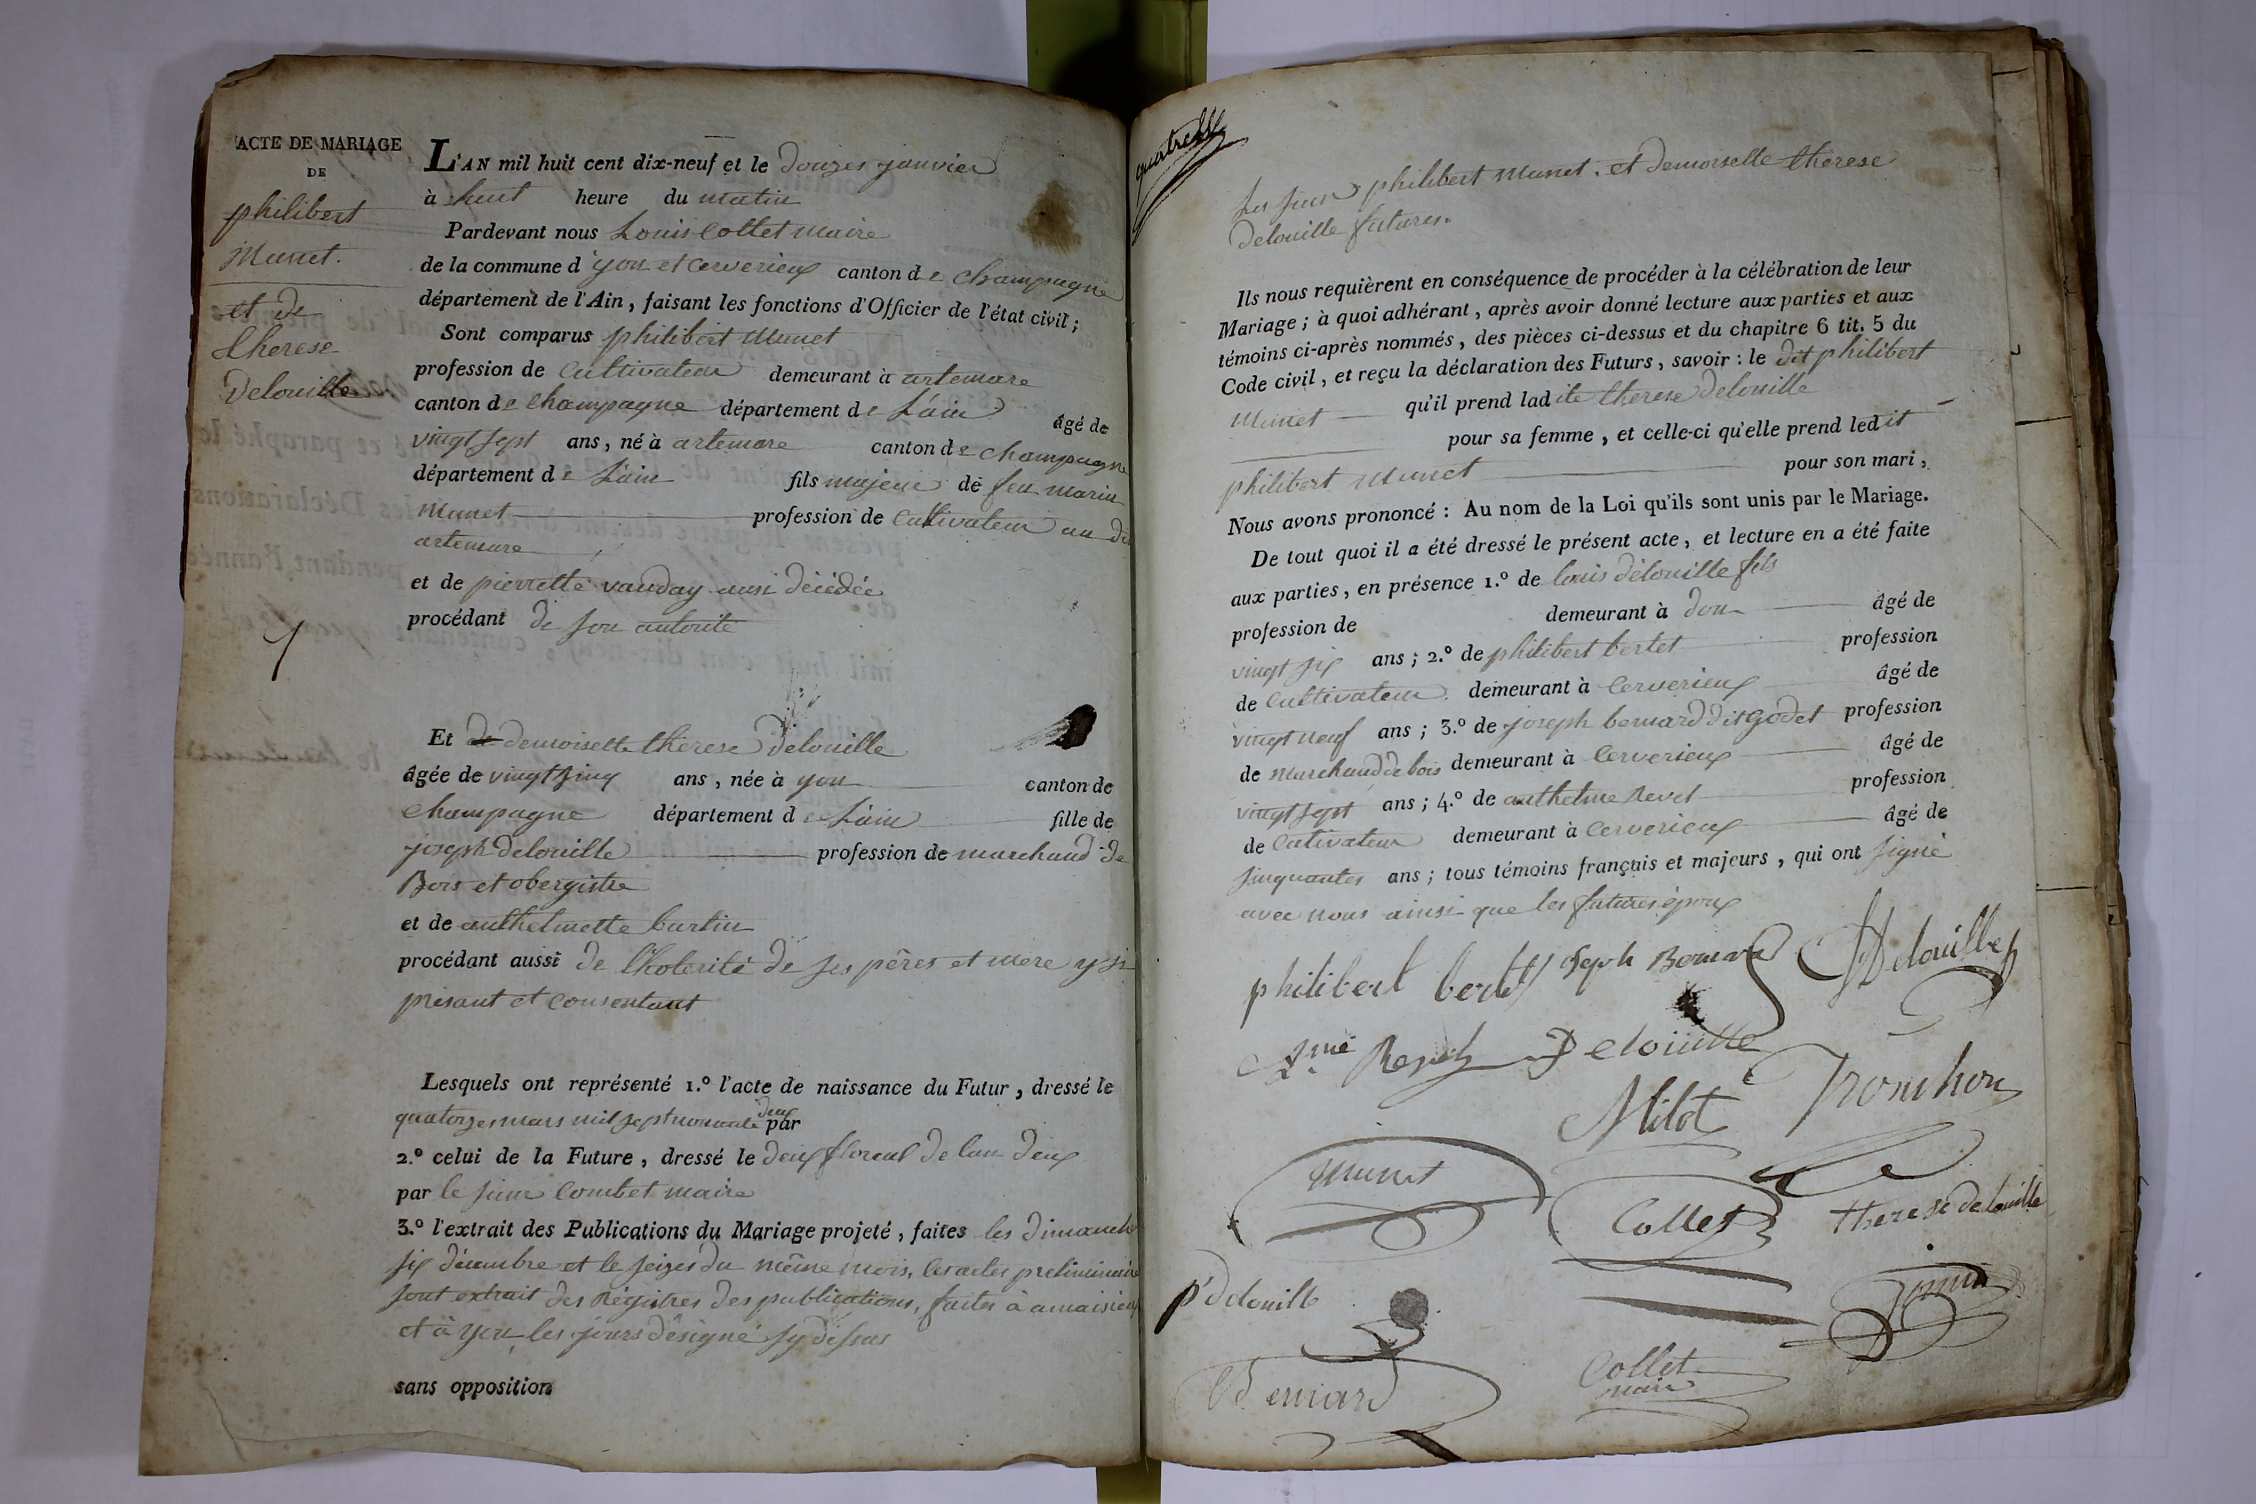 ACTE DE MARIAGE
DE
philibert
Munet.
et de
therese
Delouille
L'AN mil huit cent dix-neuf et le douzes janvier
à huit heure du matin
Pardevant nous Louis Collet maire
de la commune d'yon et Cerverieux canton de Champagne
département de l'Ain, faisant les fonctions d'Officier de l'état civil;
Sont comparus philibert Munet
profession de Cultivateur demeurant à artemare
canton de Champagne département de L'ain âgé de
vingt sept ans, né à artemare canton de Champagne
département de L'ain fils majeur de feu marin
Munet profession de Cultivateur au dit
artemare
et de pierrette vauday ausi décédée
procédant de son autorite
Et demoiselle thérese Delouille
âgée de vingt sinq ans, née à yon canton de
Champagne département de L'ain fille de
joseph delouille profession de marchand de
Bois et obergistre
et de anthelmette burtin
procédant aussi de l'hotorité de ses pères et mere y si
présant et consentant
Lesquels ont représenté 1.º l'acte de naissance du Futur, dressé le
quatorzes mars mil sept nonante deux par
2.º celui de la Future, dressé le deux floreal de lan deux
par le sieur Combet maire
3.º l'extrait des Publications du Mariage projeté, faites les dimanche
six décembre et le seizes du même mois, les actes preliminaire
sont extrait des Régistres des publications, faites à amaisieux
et à yon les jours désigné sy dessus
sans opposition
Les sieur philibert Munet. et demoiselle therese
delouille futures.
Ils nous requièrent en conséquence de procéder à la célébration de leur
Mariage; à quoi adhérant, après avoir donné lecture aux parties et aux
témoins ci-après nommés, des pièces ci-dessus et du chapitre 6 tit. 5 du
Code civil, et reçu la déclaration des Futurs, savoir: le dit philibert
Munet qu'il prend ladite therese Delouille
pour sa femme, et celle-ci qu'elle prend ledit
philibert Munet pour son mari,
Nous avons prononcé: Au nom de la Loi qu'ils sont unis par le Mariage.
De tout quoi il a été dressé le présent acte, et lecture en a été faite
aux parties, en présence 1.º de louis délouille fils
profession de demeurant à don âgé de
vingt six ans; 2.º de philibert bertet profession
de Cultivateur demeurant à Cerverieux âgé de
vingt neuf ans; 3.º de joseph bernard dit Godet profession
de marchand de bois demeurant à Cerverieux âgé de
vingt sept ans; 4.º de anthelme Revel profession
de Cutivateur demeurant à Cerverieux âgé de
sinquantes ans; tous témoins français et majeurs, qui ont signé
avec nous ainsi que les futures époux
philibert bertet joseph Bernard Delouille
Revel Delouille
Milot Tronchon
Munet
Collet therese delouille
p delouille
Bernard Collet
maire